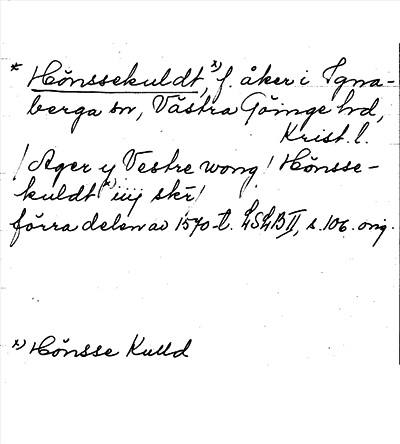 * Hönssekuldt,ˣ⁾ f. åker i Igna-
berga sn, Västra Göinge hd,
Krist. l.
/Ager y Vestre wong/ Hönsse-
kuldtˣ⁾ iiij skr/
förra delen av 1570-t. LSLB II, s. 106. orig.
ˣ⁾ Hönsse Kulld